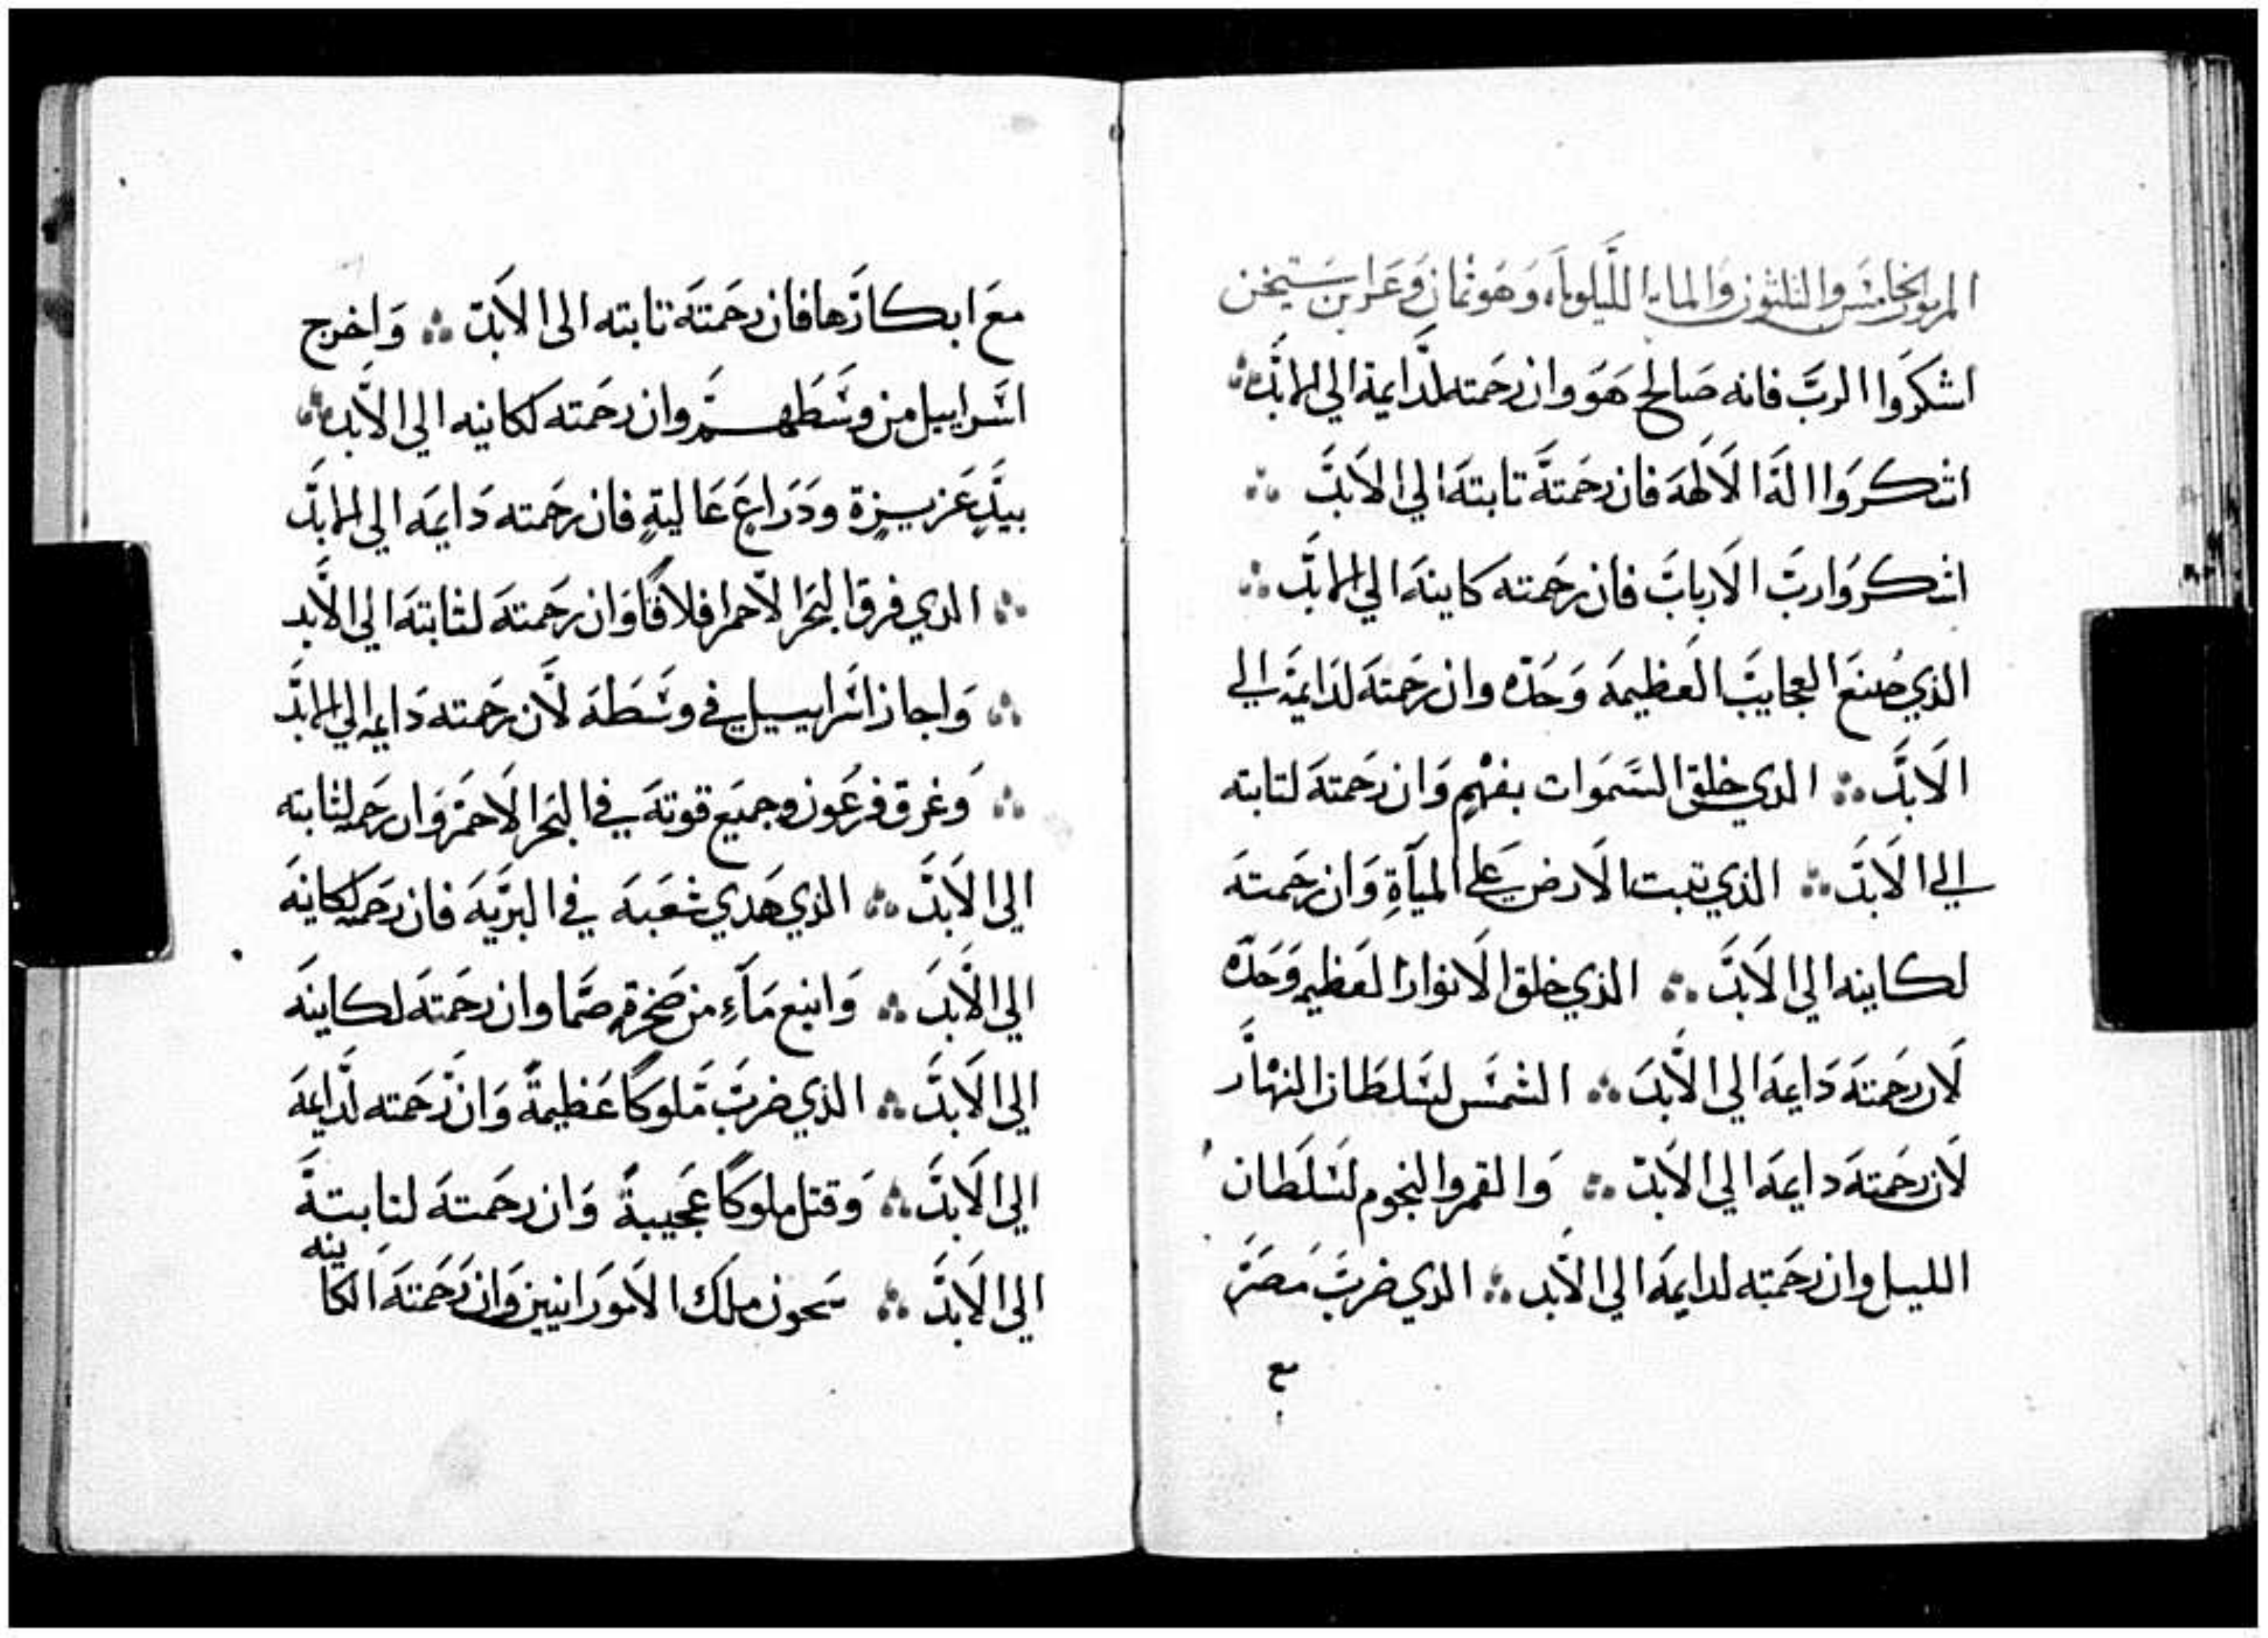 المزمور الخامس والثلثون والمايه الليلوياء وهو ثمان وعشرين ستيخن
اشكروا الربَّ فانه صَالح هَوَ وان رحَمته لدَايمة الي الابَّد ⁘
اشكروا الَه الالَهة فان رحَمتَه تابتَه الي الاَبدَّ ⁘
اشكروا ربَّ الاَربابَ فان رحَمته كاينهَ الي الابدَّ ⁘
الذي صَنعَ العجايبَ العَظيمهَ وَحَدّه وان رحَمتهَ لدَايمَه الي
الاَبدَّ ⁘ الدي خلق السَمَوات بفهٍم وَان رحَمتهَ لتابته
الي الاَبدَّ ⁘ الذي تبت الاَرض عَلي المياَةِ وَان رحَمتهَ
لكاينه الي الاَبدَّ ⁘ الذي خلق الاَنوار العَظيمه وَحَدّه
لاَن رحَمتهَ دَايمَه الي الاَبدَ ⁘ الشمسَ لسَلطَان النهَّار
لاَن رحَمتهَ دايمَه الي الاَبدّ ⁘ وَالقمر والنجوم لسَلَطان
الليل وان رحَمته لدايمَه الي الاَّبد ⁘ الدي ضربَ مَصَرَ
مع
معَ ابكارَها فان رحَمتهَ تابته الى الاَبدّ ⁘ وَاخرج
اسَراييل من وسَطَهم وان رحَمته لكانيه الي الاَّبد ⁘
بيدٍَّ عَزيزةٍ ودَرَاعٍ عَاليةٍ فان رحَمته دَايمَه الي الابدَّ
⁘ الدي فرق البَحَر الاَّحمر افلاقًا وَان رحَمتهَ لثابتهَ الي الاَّبد
⁘ وَاجاز اسَراييل في وسَطَهَ لاَّن رحَمته دَايمه الي الابدَّ
⁘ وَغرق فرعَون وجميَع قوتهَ في البَحر الاَحمَر وَان رحَمته لثابته
الي الاَبدَّ ⁘ الذي هَدي شعَبهَ في البرَّيهَ فان رحَمته لكاينهَ
الي الاَّبدَ ⁘ وَانبع مَاَءٍ من صَخرةٍ صَمَّا وان رحَمتهَ لكاينهَ
الي الاَبدَّ ⁘ الذي ضربَ مَلوَكًا عَظيمةً وَان رَحَمته لدَايمَهَ
الي الاَبدَّ ⁘ وَقتل ملوكًا عجَيبةً وَان رحَمتهَ لتابتةَ
الي الاَبدَّ ⁘ سَحون ملَك الاَموَرانيين وَان رَحَمتهَ الكاَينه